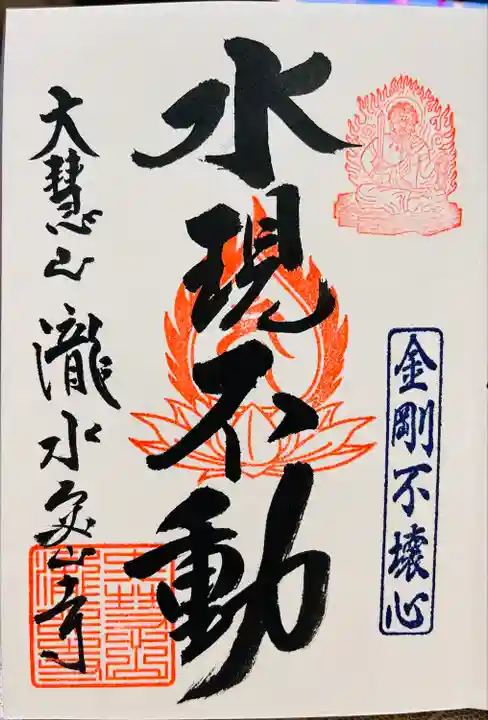 金剛不壊心
水現不動
大慧山 瀧水密寺